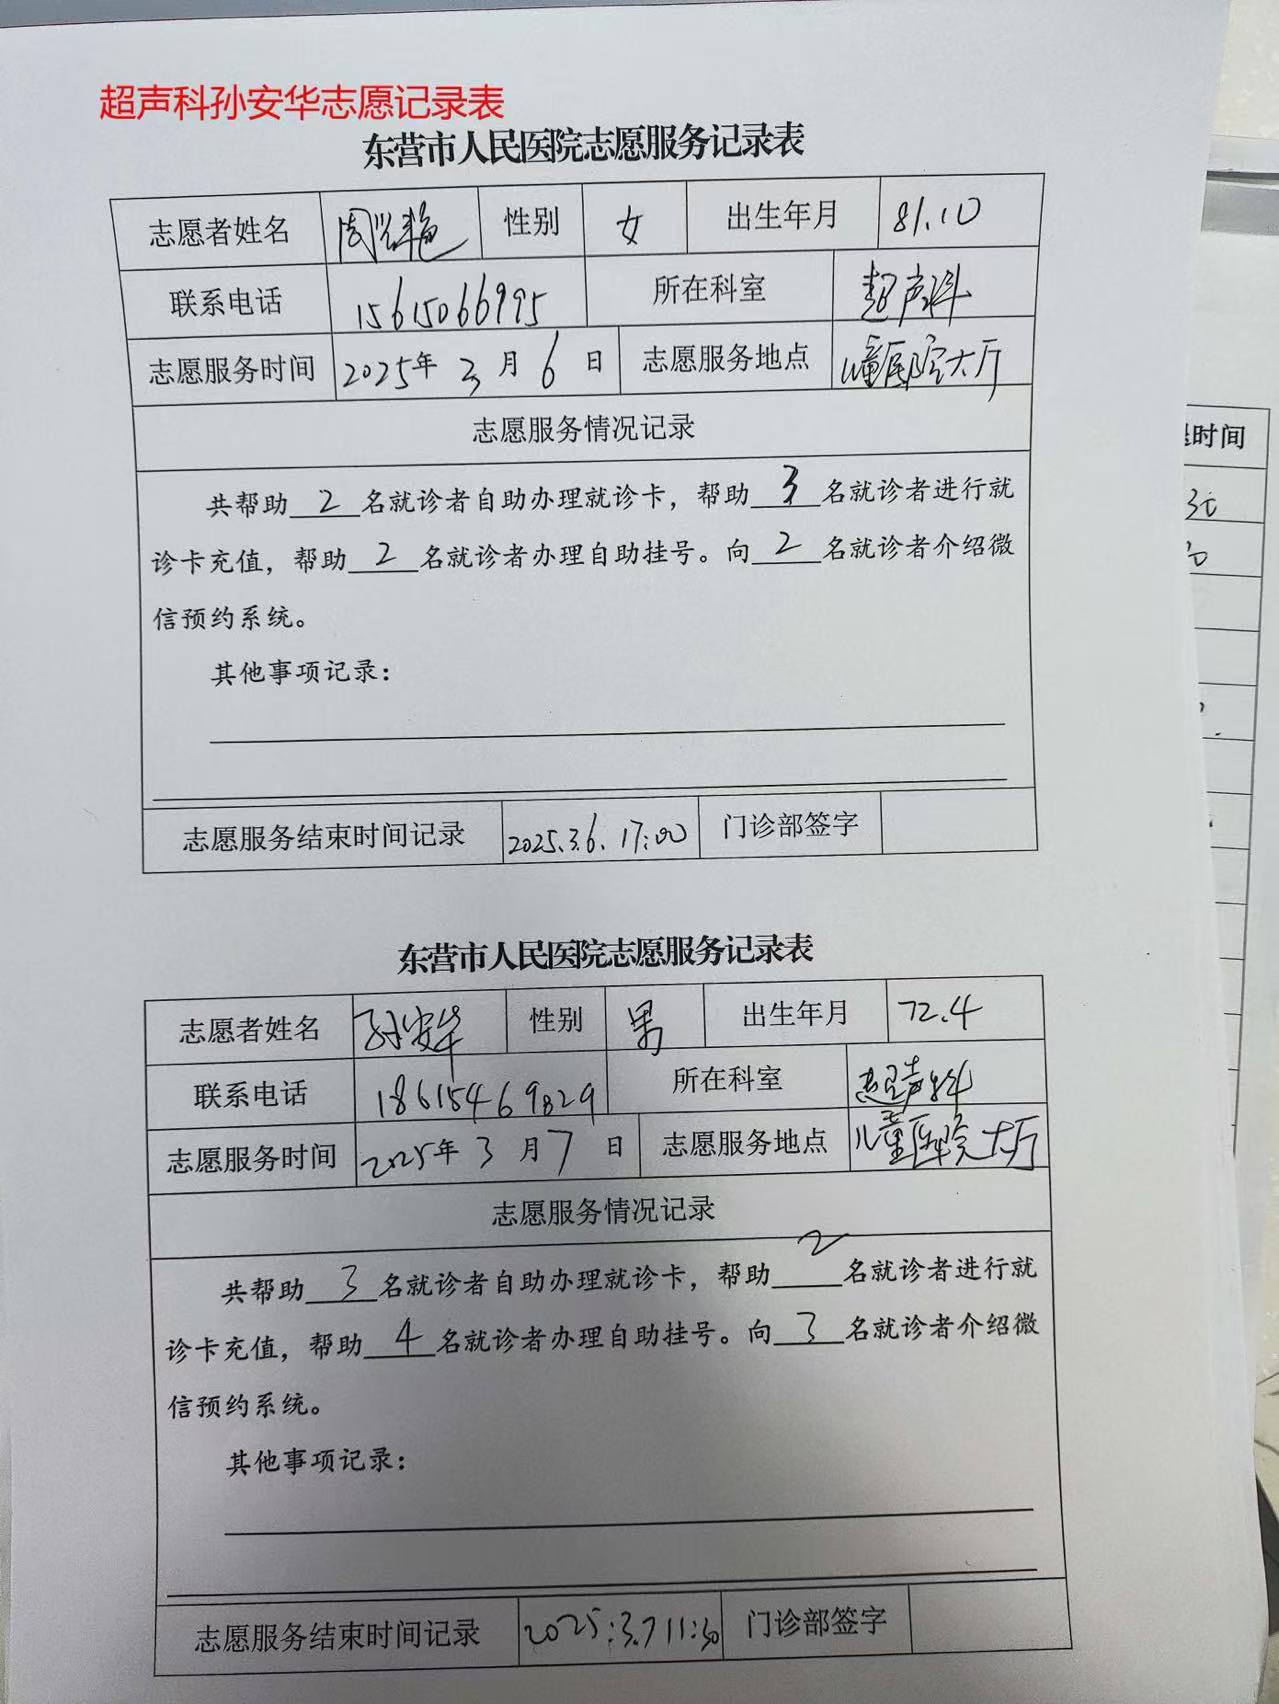 超声科孙安华志愿记录表
东营市人民医院志愿服务记录表
志愿者姓名 周 艳 性别 女 出生年月 81.10
联系电话 15615066995 所在科室 超声科
志愿服务时间 2025年 3 月 6 日 志愿服务地点 儿童医院大厅
志愿服务情况记录
共帮助 2 名就诊者自助办理就诊卡，帮助 3 名就诊者进行就
诊卡充值，帮助 2 名就诊者办理自助挂号。向 2 名就诊者介绍微
信预约系统。
其他事项记录：
志愿服务结束时间记录 2025.3.6. 17:00 门诊部签字
东营市人民医院志愿服务记录表
志愿者姓名 孙安华 性别 男 出生年月 72.4
联系电话 18615469829 所在科室 超声科
志愿服务时间 2025年 3 月 7 日 志愿服务地点 儿童医院大厅
志愿服务情况记录
共帮助 3 名就诊者自助办理就诊卡，帮助 2 名就诊者进行就
诊卡充值，帮助 4 名就诊者办理自助挂号。向 3 名就诊者介绍微
信预约系统。
其他事项记录：
志愿服务结束时间记录 2025.3.7 11:30 门诊部签字
时间